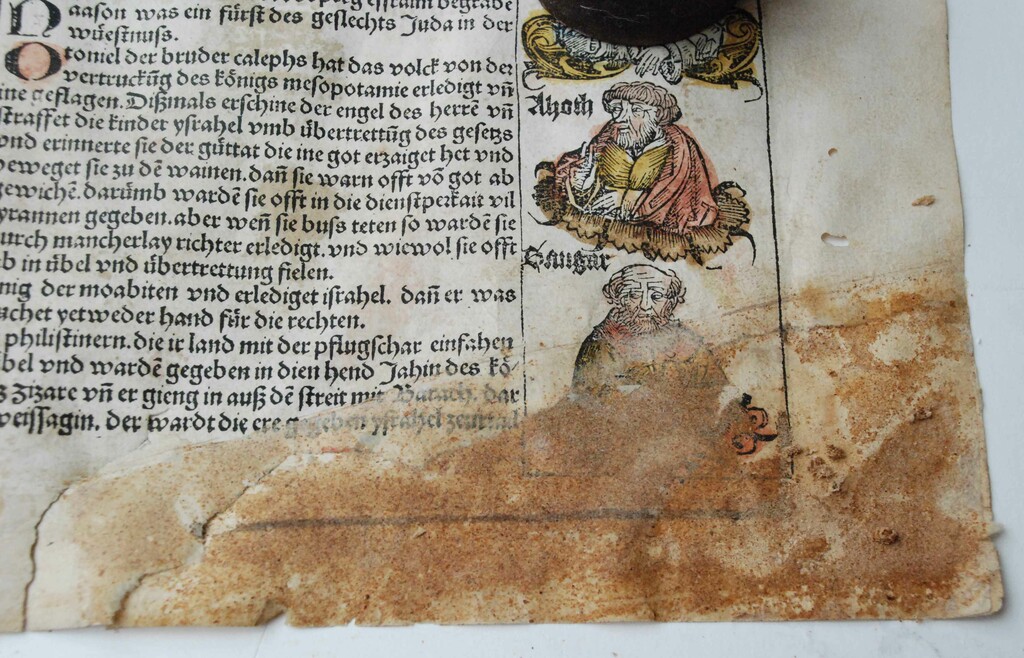 aason was ein fürst des geslechts Juda in der
wüestnuss.
Otoniel der bruder calephs hat das volck von der
vertruckūg des königs mesopotamie erledigt vñ
ine geslagen. Dißmals erschine der engel des herrē vñ
straffet die kinder ysrahel vmb übertrettūg des gesetzs
vnd erinnerte sie der güttat die ine got erzaiget het vnd
beweget sie zu dē wainen. dañ sie warn offt vō got ab
gewichē. darūmb wardē sie offt in die dienstperkait vil
tyrannen gegeben. aber weñ sie buss teten so wardē sie
durch mancherlay richter erledigt. vnd wiewol sie offt
in übel vnd übertrettung fielen.
nig der moabiten vnd erlediget israhel. dañ er was
yetweder hand für die rechten.
philistinern. die ir land mit der pflugschar einfahen
bel vnd wardē gegeben in dien hend Jahin des kö-
Zizare vñ er gieng in auß dē streit mit Barach. dar
weissagin. der wardt die ere gegeben ysrahel
Ahoth
Sangar